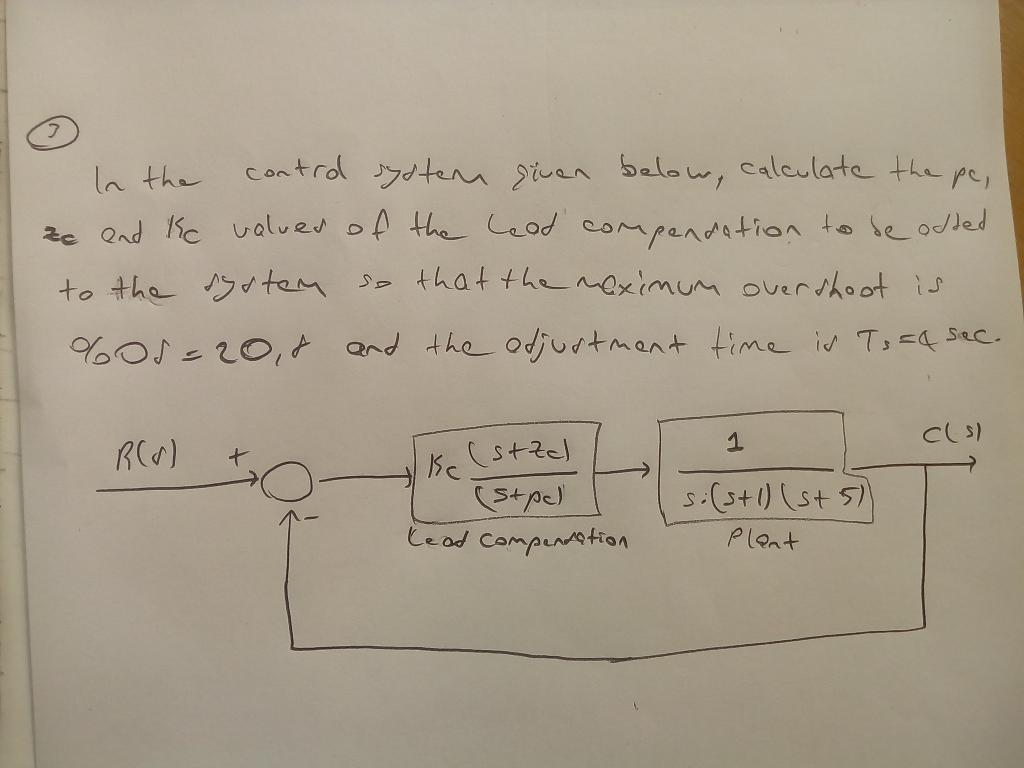 7
In the control system given below, calculate the pc,
zc and Kc values of the Lead compensation to be added
to the system so that the maximum overshoot is
%OS = 20,8 and the adjustment time is Ts = 4 sec.
R(s) + Kc (s+zc) / (s+pc) 1 / s.(s+1)(s+5) C(s)
-
Lead compensation Plant